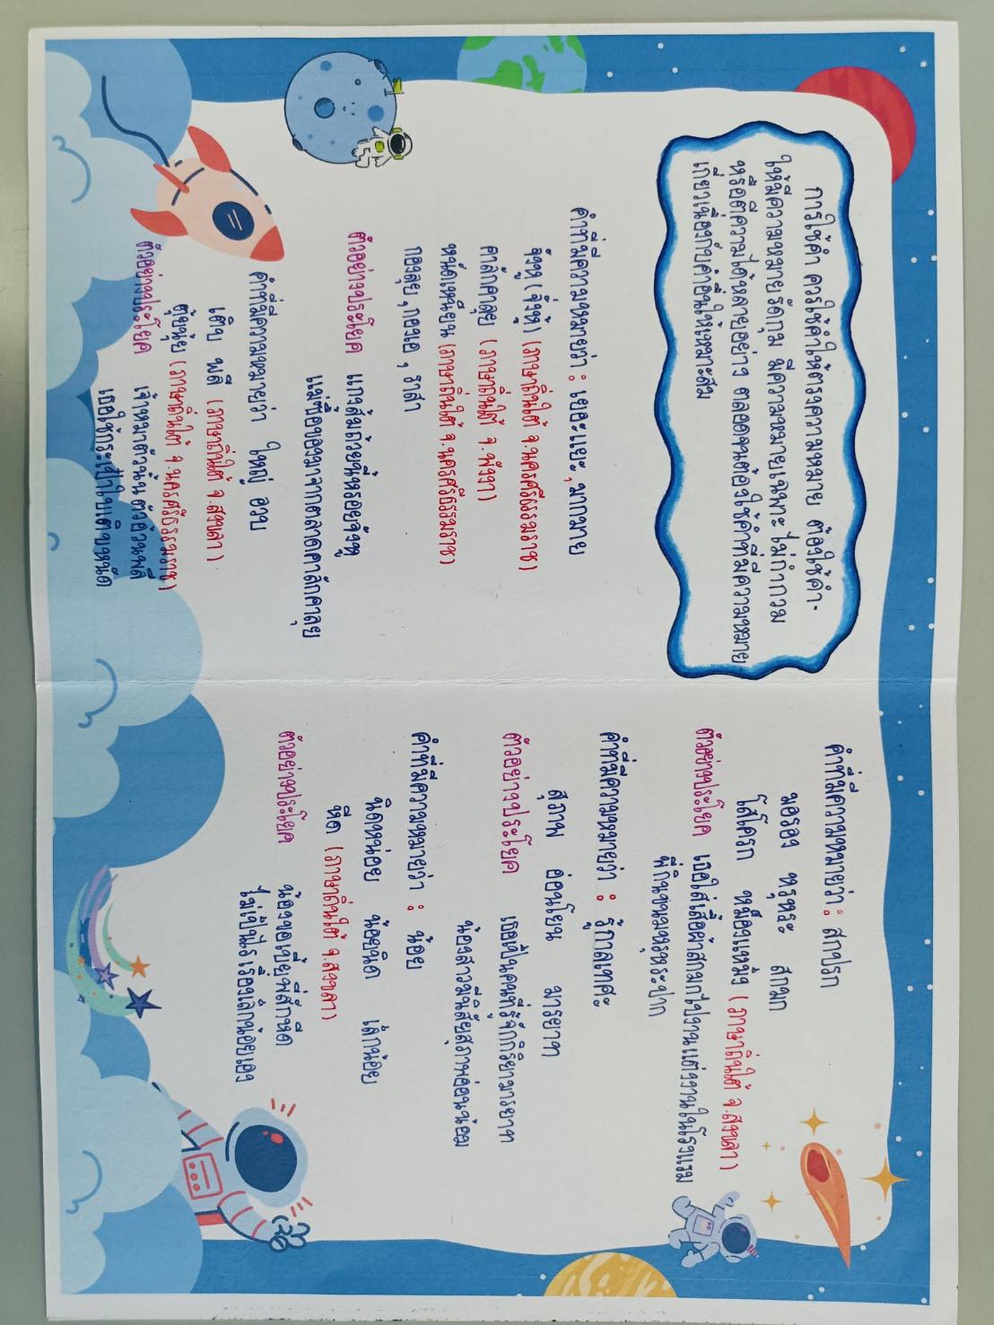 การใช้คำ ควรใช้คำให้ตรงความหมาย ต้องใช้คำ-
ให้มีความหมายรัดกุม มีความหมายเฉพาะ ไม่กำกวม
หรือตีความได้หลายอย่าง ตลอดจนต้องใช้คำที่มีความหมาย
เกี่ยวเนื่องกับคำอื่นให้เหมาะสม
คำที่มีความหมายว่า : เยอะแยะ, มากมาย
จังหู (จั่งหู้) (ภาษาถิ่นใต้ จ.นครศรีธรรมราช)
คาลักคาลุย (ภาษาถิ่นใต้ จ.พังงา)
หนัดเหนียน (ภาษาถิ่นใต้ จ.นครศรีธรรมราช)
กองลุย , กองเอ , ราสา
ตัวอย่างประโยค แกงส้มถ้วยนี้หรอยจังหู
แม่ซื้อของมาจากตลาดคาลักคาลุย
คำที่มีความหมายว่า ใหญ่ อวบ
เติบ พลี (ภาษาถิ่นใต้ จ.สงขลา)
ตุ้ยนุ้ย (ภาษาถิ่นใต้ จ.นครศรีธรรมราช)
ตัวอย่างประโยค เจ้าหมาตัวนั้น ตัวอ้วนพลี
เธอใช้กระเป๋าใบเติบหนัด
คำที่มีความหมายว่า : สกปรก
มอรอง หรุหระ สกมก
โสโครก หม็องแหม็ง (ภาษาถิ่นใต้ จ.สงขลา)
ตัวอย่างประโยค เธอใส่เสื้อผ้าสกมกไปงานแต่งงานในโรงแรม
พี่กินขนมหรุหระปาก
คำที่มีความหมายว่า : รู้กาลเทศะ
สุภาพ อ่อนโยน มารยาท
ตัวอย่างประโยค เธอเป็นคนที่รู้จักกิริยามารยาท
น้องสาวมีนิสัยสุภาพอ่อนน้อม
คำที่มีความหมายว่า : น้อย
นิดหน่อย น้อยนิด เล็กน้อย
หีด (ภาษาถิ่นใต้ จ.สงขลา)
ตัวอย่างประโยค น้องขอเบี้ยพี่สักหีด
ไม่เป็นไร เรื่องเล็กน้อยเอง